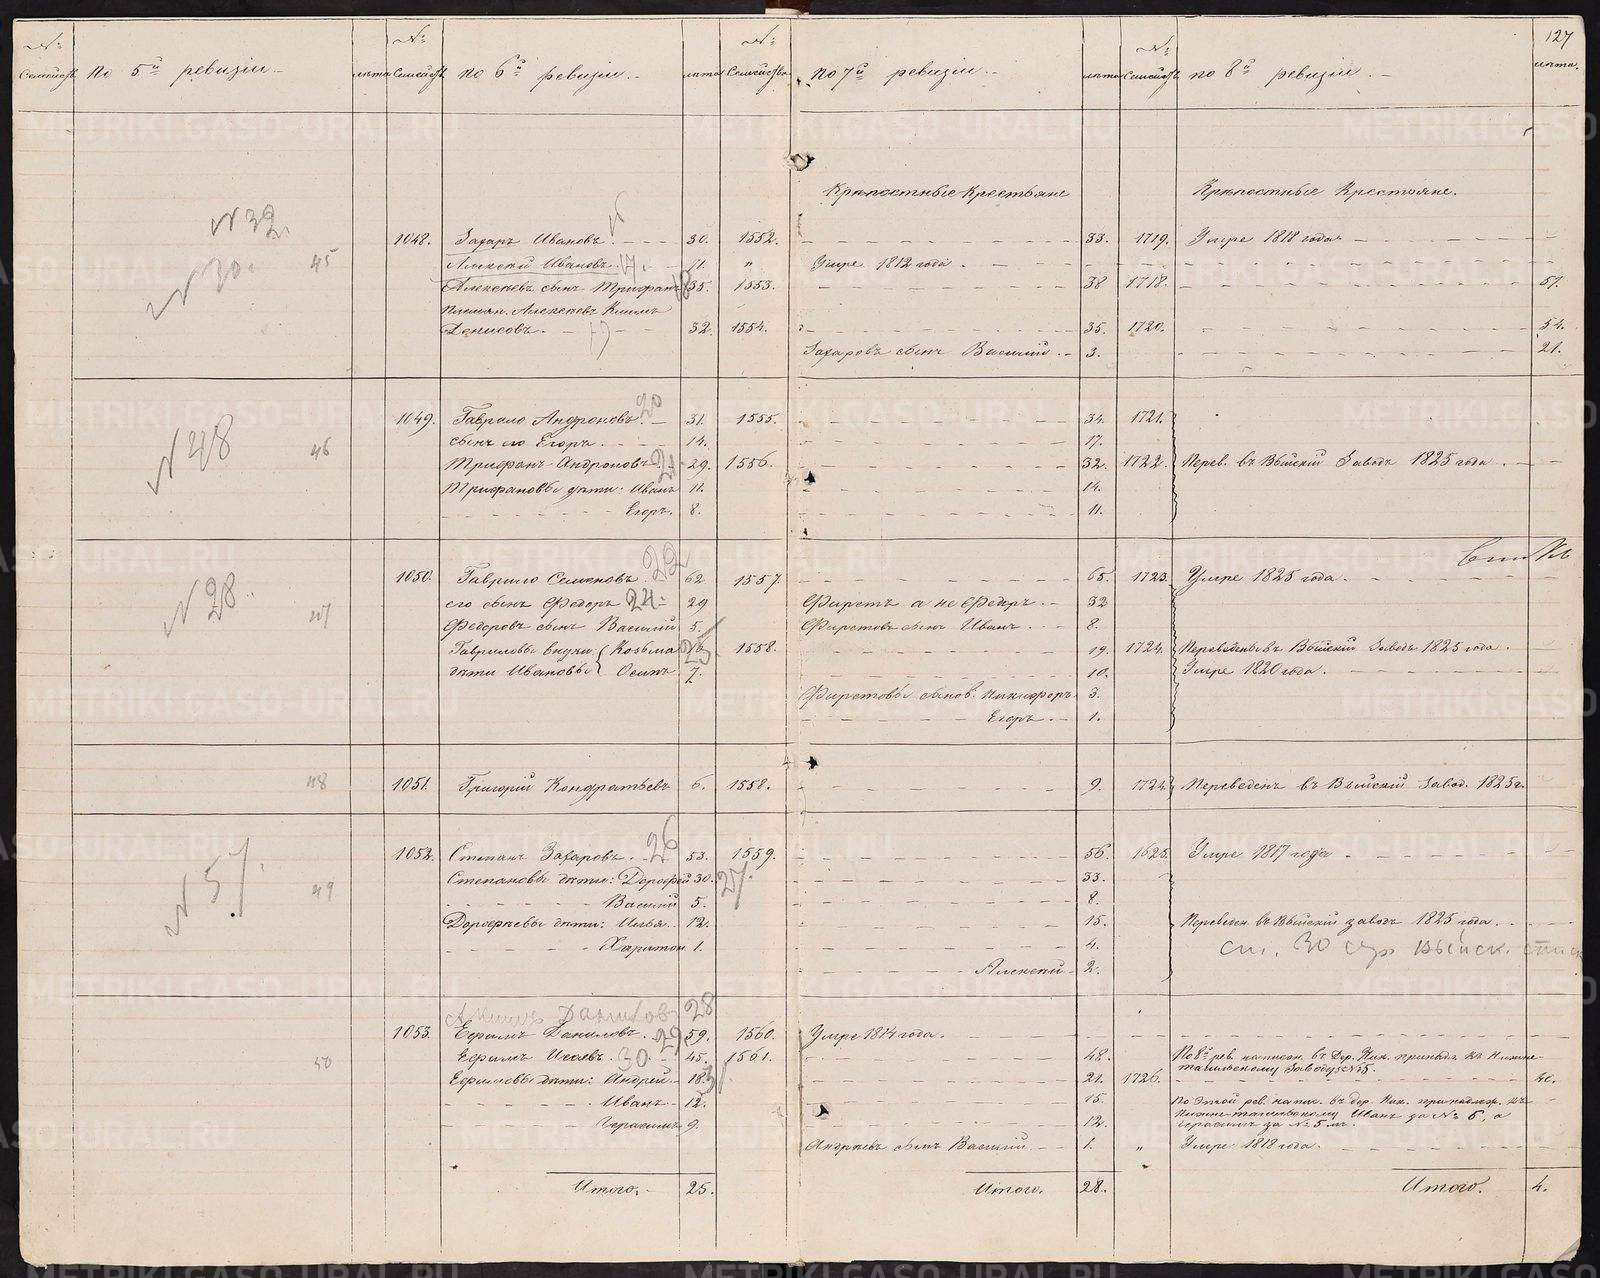 127
№ Семейств. по 5й ревизіи. лѣта № Семейств. по 6й ревизіи. лѣта № Семейства по 7й ревизіи. лѣта № Семейств. по 8й ревизіи. лѣта.
Крѣпостные Крестьяне Крѣпостные Крестьяне.
N 32.
N 30. 45
1048. Захаръ Ивановъ. 30. 1552. 33. 1719. Умре 1818 года.
Алексѣй Ивановъ. 17. 71. " Умре 1812 года
Алексѣевъ сынъ Трифанъ 18 35. 1553. 38 1718. 57.
Племян. Алексѣевъ Климъ
Денисовъ. 19 32. 1554. 35. 1720. 54.
Захаровъ сынъ Василій. 3. 21.
N 48 46
1049. Гаврило Андроновъ. 20 31. 1555. 34. 1721.
сынъ его Егоръ. 14. 17.
Трифанъ Андроновъ 21 29. 1556. 32. 1722. Перев. въ Выйскій Заводъ 1825 года.
Трифановы дѣти: Иванъ 11. 14.
Егоръ. 8. 11.
N 28. 47
1050. Гаврило Семеновъ 22 62 1557. 65. 1723. Умре 1825 года.
его сынъ Федоръ 24. 29 Фирстъ а не Федоръ. 32
Федоровъ сынъ Василій 5. Фирстовъ сынъ Иванъ 8.
Гавриловы внуки Козьма 25 1558. 19. 1724. Переведены въ Выйскій Заводъ 1825 года.
дѣти Ивановы Осипъ 7. 10. Умре 1820 года.
Фирстовы сынов. Никифоръ 3.
Егоръ. 1.
48 1051. Григорій Кондратьевъ 6. 1558. 9. 1724. Переведенъ въ Выйскій Завод. 1825 г.
N 57. 49
1052. Степанъ Захаровъ. 26 53. 1559. 56. 1625. Умре 1817 года
Степановы дѣти: Дорофей 30. 27. 33.
Василій 5. 8.
Дорофеевы дѣти: Илья. 12. 15. Переведен. въ Выйскій заводъ 1825 года.
Харитон 1. 4. сп. 30 стр Выйск. спис
Алексѣй 2.
Акимъ Данилов 28
50
1053. Ефимъ Даниловъ. 29 59. 1560. Умре 1814 года.
Ефимъ Исаевъ. 30. 45. 1561. 48. По 8й рев. написан. въ Дер. Ник. принадл. къ Нижне-
тагильскому Заводу за №5.
Ефимовы дѣти: Андрей 18. 31 21. 1726. 40.
Иванъ 12. 15. По этой рев. напис. въ дер. Ник. принадлеж. къ
Герасимъ 9. 12. Нижне-тагильскому Иванъ за № 6, а
Герасимъ за № 5 м.
Андреевъ сынъ Василій. 1. " Умре 1818 года.
Итого. 25. Итого. 28. Итого. 4.